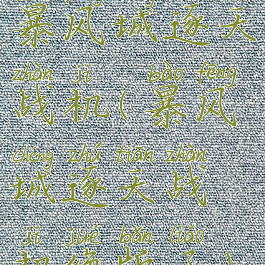 暴风城逐天
zhàn jī bào fēng
战机(暴风
chéng zhú tiān zhàn
城逐天战
jī jué bǎn liǎo